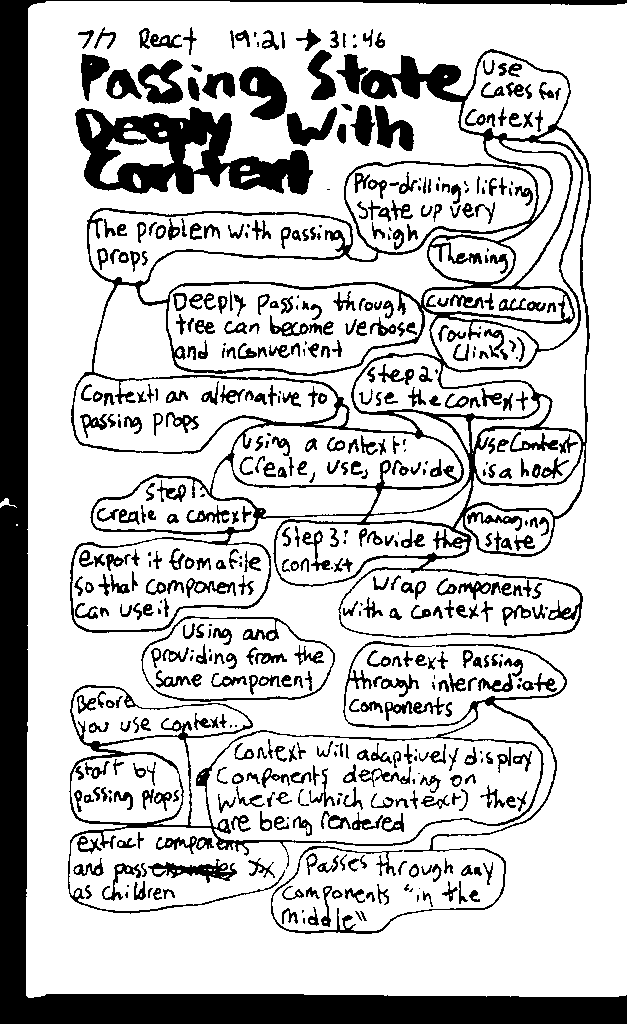 7/7 React 19:21 → 31:46
Passing State
Deeply With
Context
Use
Cases for
Context
Prop-drilling: lifting
State up very
high
The problem with passing
props
Theming
Deeply Passing through
tree can become verbose
and inconvenient
current account
routing
(links?)
Step 2:
Use the context
Context: an alternative to
passing props
useContext
is a hook
Using a context:
Create, use, provide
Step 1:
Create a context
managing
state
Step 3: Provide the
context
export it from a file
so that components
can use it
Wrap components
with a context provider
Using and
providing from the
Same component
Context Passing
through intermediate
components
Before
you use context...
start by
passing props
Context will adaptively display
components depending on
where (which context) they
are being rendered
extract components
and pass examples JSX
as children
Passes through any
components "in the
middle"